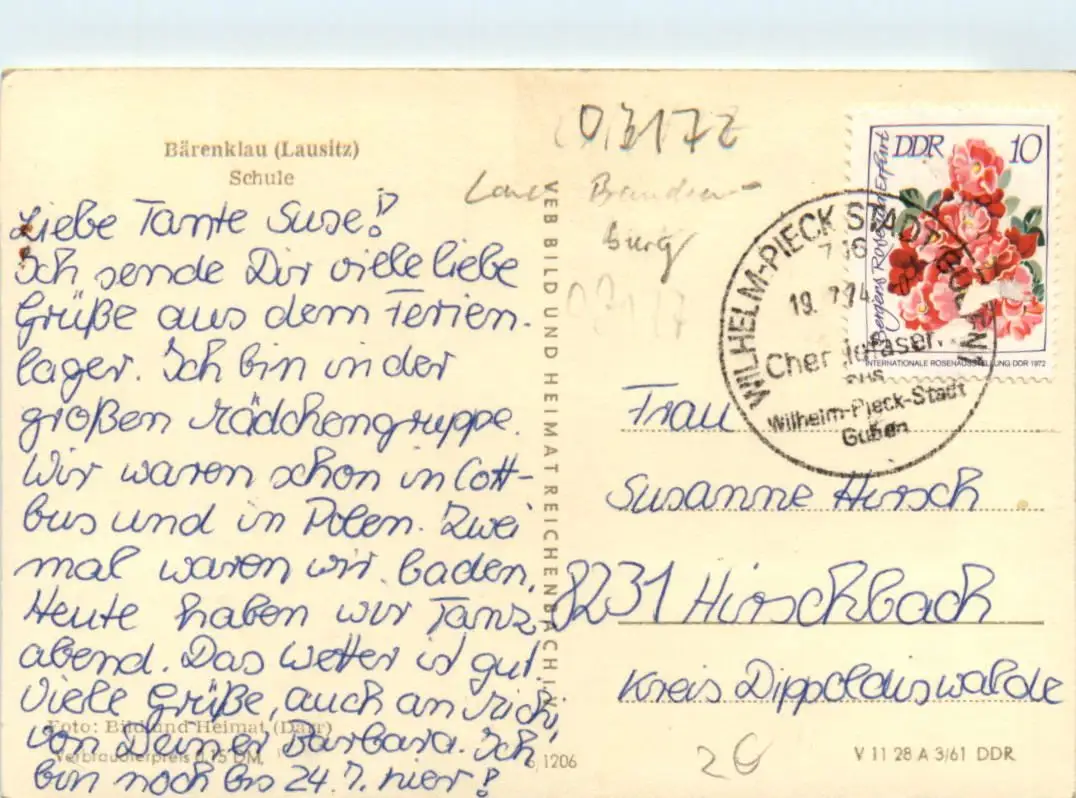 Bärenklau (Lausitz)
Schule
Liebe Tante Suse!
Ich sende Dir viele liebe
Grüße aus dem Ferien-
lager. Ich bin in der
großen Mädchengruppe.
Wir waren schon in Cott-
bus und in Polen. Zwei
mal waren wir baden.
Heute haben wir Tanz
abend. Das Wetter ist gut.
Viele Grüße, auch an
von Deiner Barbara. Ich
bin noch bis 24.7. hier!
Foto: Bild und Heimat (Darr)
Verbraucherpreis 0,15 DM
6,1206
VEB BILD UND HEIMAT REICHENBACH I.V.
03172
Branden-
burg
DDR 10
Erfurt
INTERNATIONALE ROSENAUSSTELLUNG DDR 1972
WILHELM-PIECK STADT GUBEN 1
19. 7.74
Chemiefaser
aus
Wilhelm-Pieck-Stadt
Guben
Frau
Susanne Hirsch
8231 Hirschbach
Kreis Dippoldiswalde
26
V 11 28 A 3/61 DDR